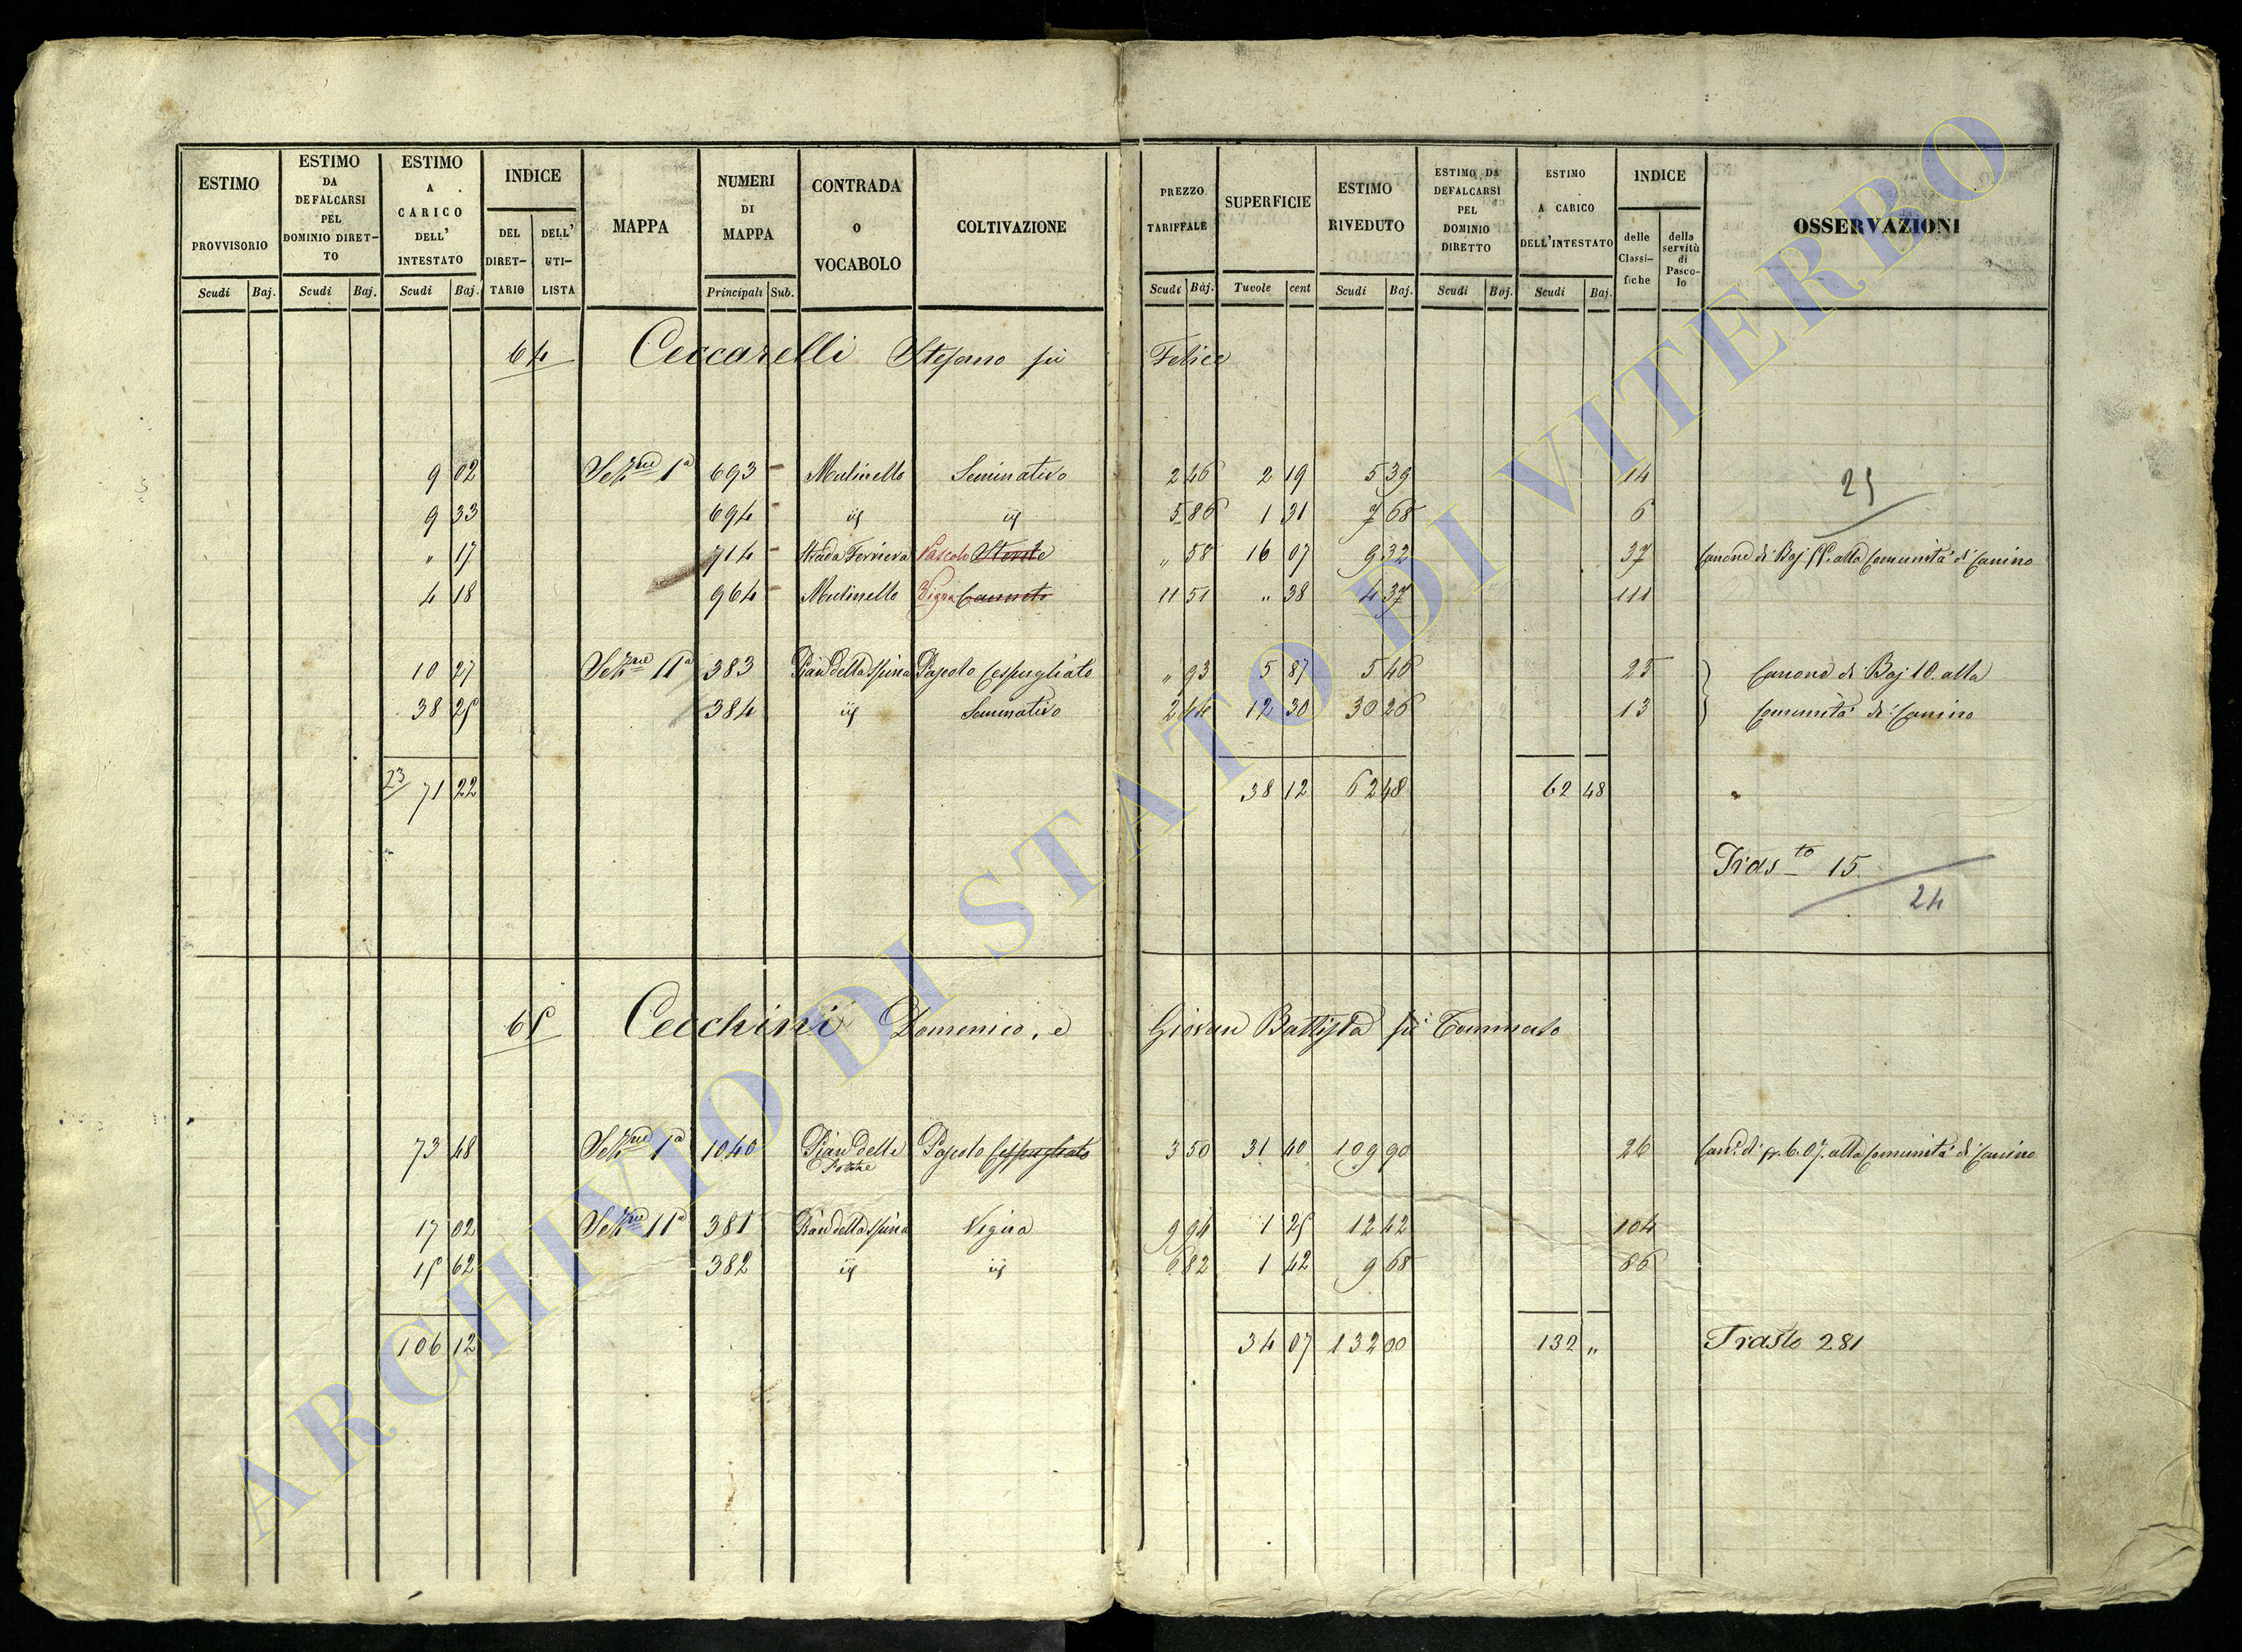 ESTIMO PROVVISORIO | ESTIMO DA DEFALCARSI PEL DOMINIO DIRET-TO | ESTIMO A CARICO DELL' INTESTATO | INDICE DEL DIRET-TARIO | DELL' UTI-LISTA | MAPPA | NUMERI DI MAPPA | CONTRADA O VOCABOLO | COLTIVAZIONE | PREZZO TARIFFALE | SUPERFICIE | ESTIMO RIVEDUTO | ESTIMO DA DEFALCARSI PEL DOMINIO DIRETTO | ESTIMO A CARICO DELL'INTESTATO | INDICE delle Classi-fiche | della servitù di Pasco-lo | OSSERVAZIONI
Scudi | Baj. | Scudi | Baj. | Scudi | Baj. | Principali | Sub. | Scudi | Baj. | Tavole | cent | Scudi | Baj. | Scudi | Baj. | Scudi | Baj.
64 Ceccarelli Stefano fù Felice
9 02 | Sezne 1a | 693 | Mulinello | Seminativo | 2 46 | 2 19 | 5 39 | 14 | 25
9 33 | 694 | id | id | 5 86 | 1 31 | 7 68 | 6
" 17 | 714 | Strada Ferriera | Pascolo | " 58 | 16 07 | 9 32 | 37 | Canone di Baj alla Comunità di Canino
4 18 | 964 | Mulinello | Vigna Canneto | 11 51 | " 38 | 4 37 | 111
10 27 | Sezne 11a | 383 | Pian della Spina | Pascolo Cespugliato | " 93 | 5 87 | 5 46 | 25 | Canone di Baj 10. alla
38 25 | 384 | id | Seminativo | 2 44 | 12 30 | 30 26 | 13 | Comunità di Canino
23 71 22 | 38 12 | 62 48 | 62 48
Trasto 15.
24
65 Cecchini Domenico, e Giovan Battista fù Tommaso
73 48 | Sezne 1a | 1040 | Pian delle | Pascolo Cespugliato | 3 50 | 31 40 | 109 90 | 26 | alla Comunità di Canino
17 02 | Sezne 11a | 381 | Pian della Spina | Vigna | 9 94 | 1 25 | 12 42 | 104
15 62 | 382 | id | id | 6 82 | 1 42 | 9 68 | 86
106 12 | 34 07 | 132 00 | 132 " | Trasto 281
ARCHIVIO DI STATO DI VITERBO